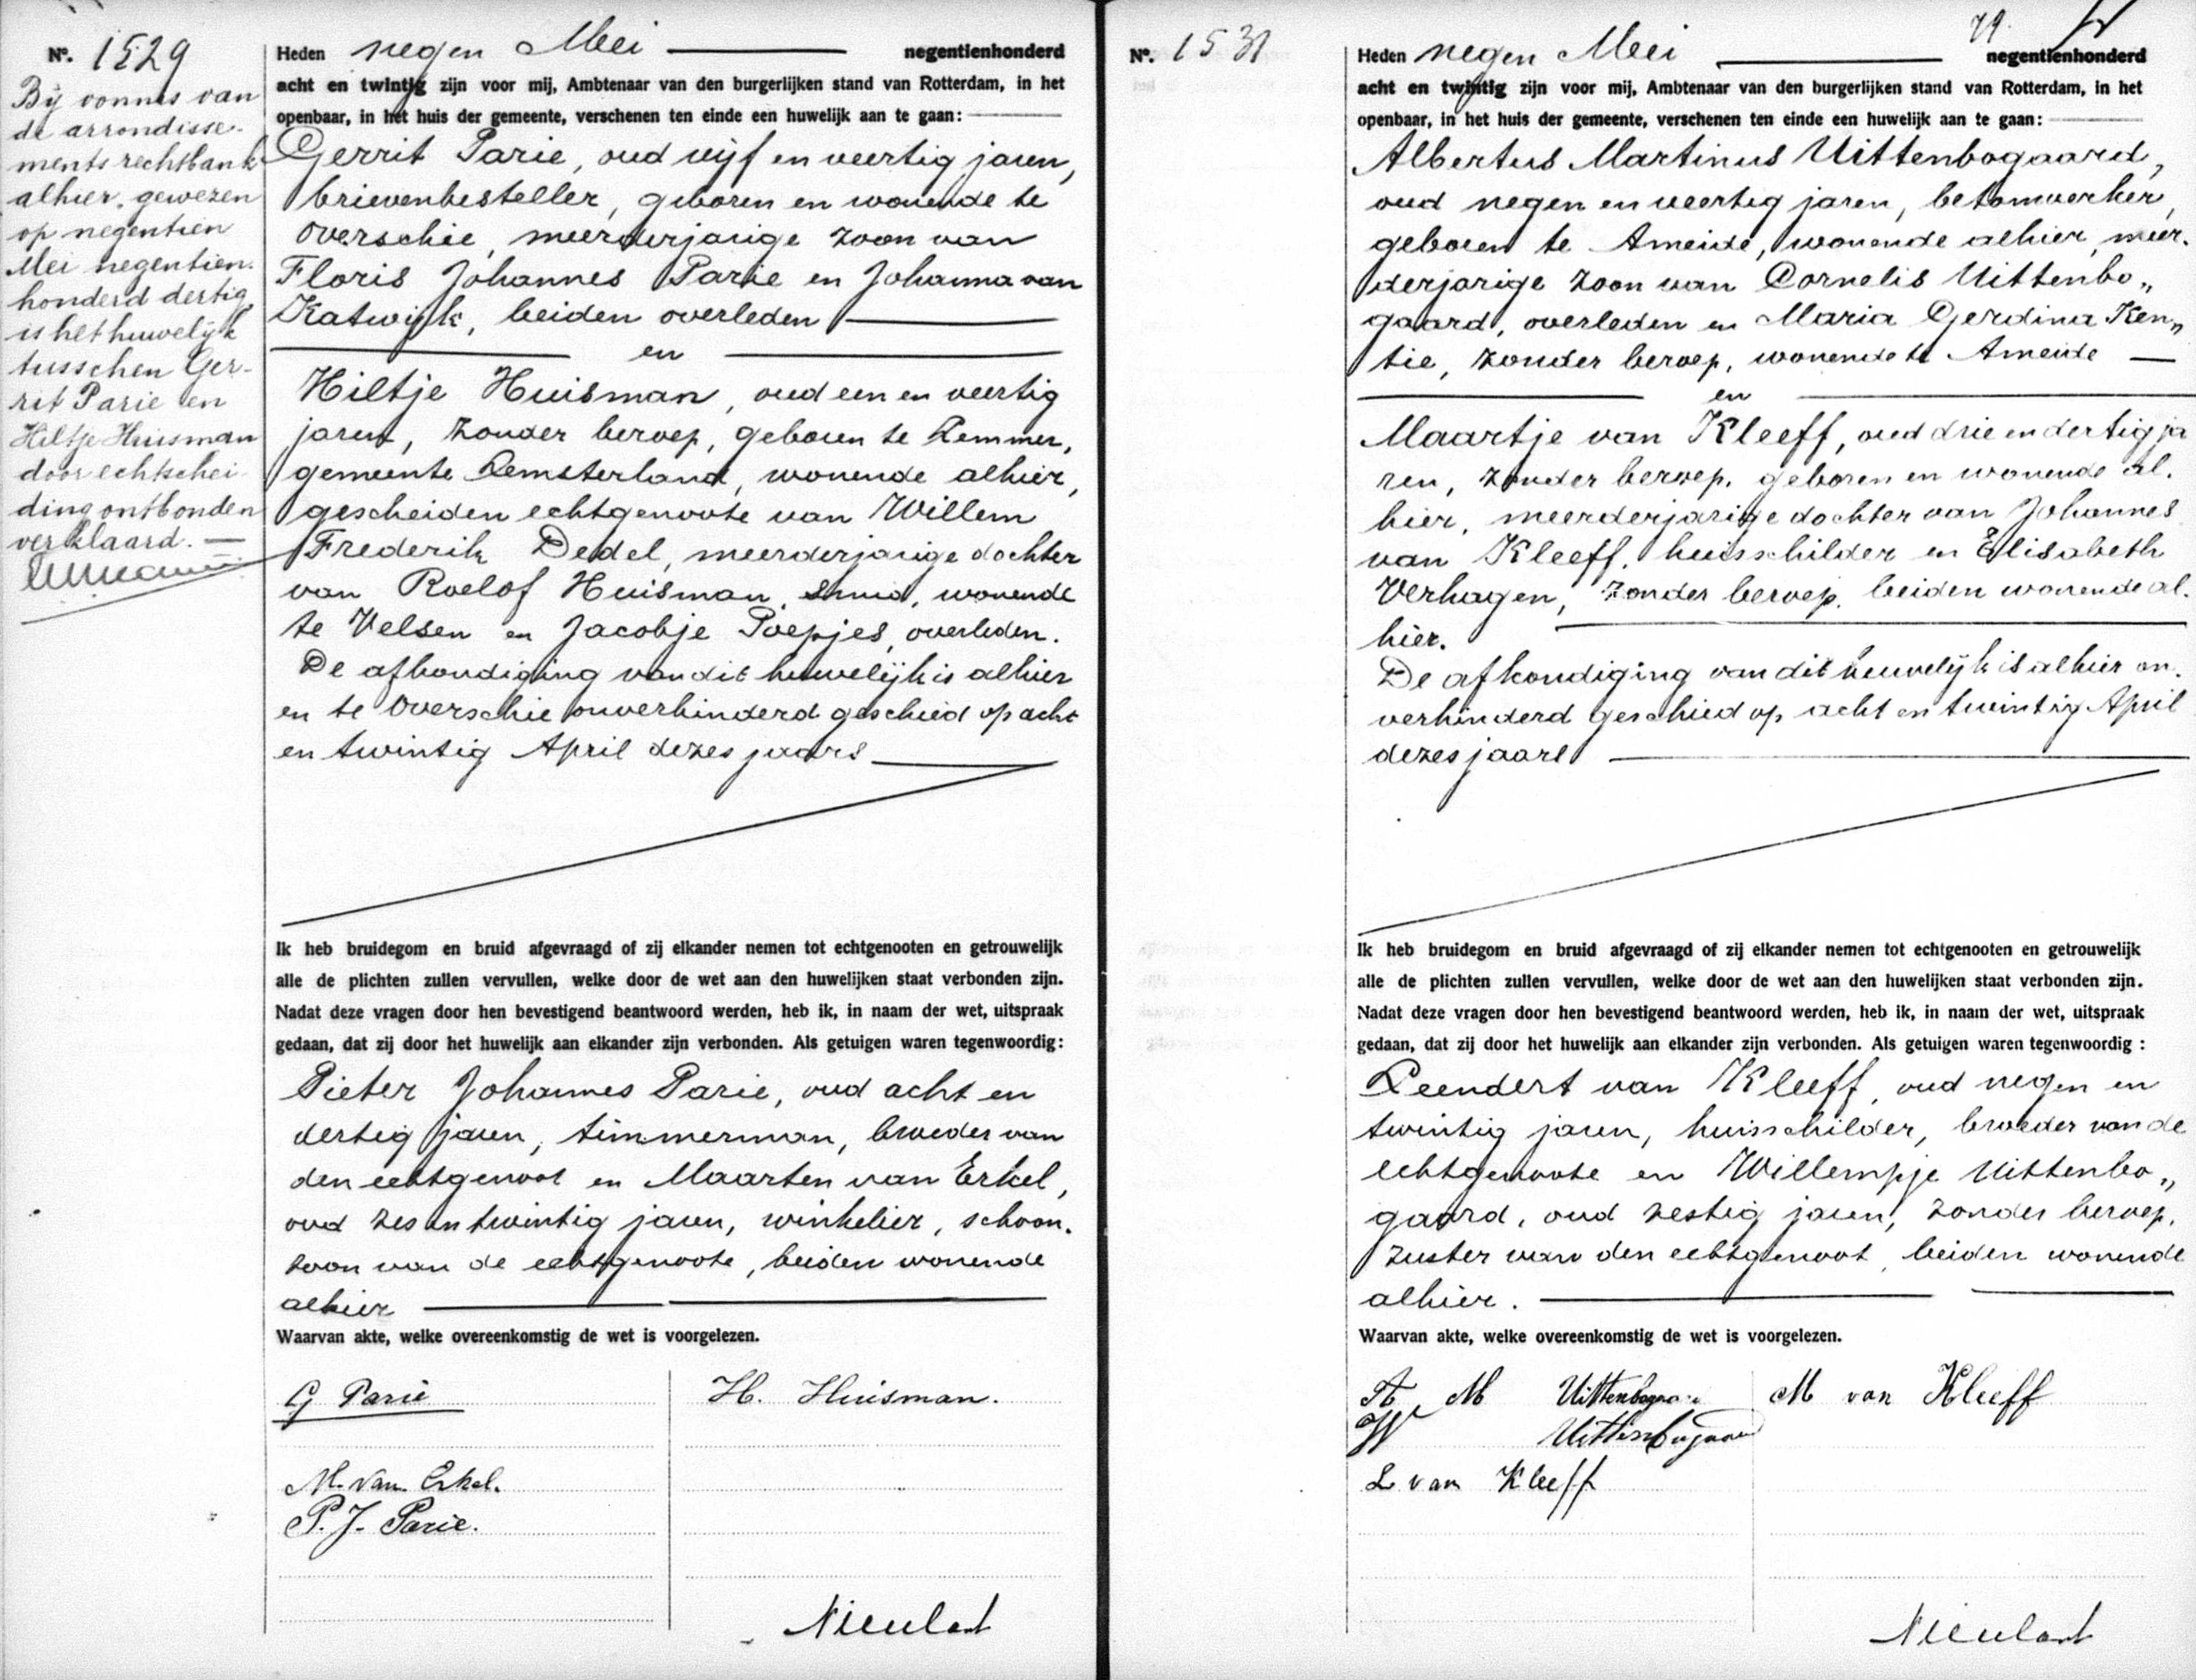 Nº. 1529
Bij vonnis van
de arrondisse-
ments rechtbank
alhier, gewezen
op negentien
Mei negentien-
honderd dertig
is het huwelijk
tusschen Ger-
rit Parie en
Hiltje Huisman
door echtschei-
ding ontbonden
verklaard.
Heden negen Mei negentienhonderd
acht en twintig zijn voor mij, Ambtenaar van den burgerlijken stand van Rotterdam, in het
openbaar, in het huis der gemeente, verschenen ten einde een huwelijk aan te gaan:
Gerrit Parie, oud vijf en veertig jaren,
brievenbesteller, geboren en wonende te
Overschie, meerderjarige zoon van
Floris Johannes Parie en Johanna van
Katwijk, beiden overleden
en
Hiltje Huisman, oud een en veertig
jaren, zonder beroep, geboren te Lemmer,
gemeente Lemsterland, wonende alhier,
gescheiden echtgenoote van Willem
Frederik Dedel, meerderjarige dochter
van Roelof Huisman, smid, wonende
te Velsen en Jacobje Poepjes, overleden.
De afkondiging van dit huwelijk is alhier
en te Overschie onverhinderd geschied op acht
en twintig April dezes jaars
Ik heb bruidegom en bruid afgevraagd of zij elkander nemen tot echtgenooten en getrouwelijk
alle de plichten zullen vervullen, welke door de wet aan den huwelijken staat verbonden zijn.
Nadat deze vragen door hen bevestigend beantwoord werden, heb ik, in naam der wet, uitspraak
gedaan, dat zij door het huwelijk aan elkander zijn verbonden. Als getuigen waren tegenwoordig:
Pieter Johannes Parie, oud acht en
dertig jaren, timmerman, broeder van
den echtgenoot en Maarten van Erkel,
oud zes en twintig jaren, winkelier, schoon-
zoon van de echtgenoote, beiden wonende
alhier
Waarvan akte, welke overeenkomstig de wet is voorgelezen.
G Parie H. Huisman.
M. van Erkel.
P. J. Parie.
79.
Nº. 1531
Heden negen Mei negentienhonderd
acht en twintig zijn voor mij, Ambtenaar van den burgerlijken stand van Rotterdam, in het
openbaar, in het huis der gemeente, verschenen ten einde een huwelijk aan te gaan:
Albertus Martinus Uittenbogaard,
oud negen en veertig jaren, betonwerker,
geboren te Ameide, wonende alhier, meer-
derjarige zoon van Cornelis Uittenbo„
gaard, overleden en Maria Gerdina Ken„
tie, zonder beroep, wonende te Ameide
en
Maartje van Kleeff, oud drie en dertig ja
ren, zonder beroep, geboren en wonende al-
hier, meerderjarige dochter van Johannes
van Kleeff, huisschilder en Elisabeth
Verhagen, zonder beroep, beiden wonende al-
hier.
De afkondiging van dit huwelijk is alhier on-
verhinderd geschied op acht en twintig April
dezes jaars
Ik heb bruidegom en bruid afgevraagd of zij elkander nemen tot echtgenooten en getrouwelijk
alle de plichten zullen vervullen, welke door de wet aan den huwelijken staat verbonden zijn.
Nadat deze vragen door hen bevestigend beantwoord werden, heb ik, in naam der wet, uitspraak
gedaan, dat zij door het huwelijk aan elkander zijn verbonden. Als getuigen waren tegenwoordig :
Leendert van Kleeff, oud negen en
twintig jaren, huisschilder, broeder van de
echtgenoote en Willempje Uittenbo„
gaard, oud zestig jaren, zonder beroep,
zuster van den echtgenoot, beiden wonende
alhier.
Waarvan akte, welke overeenkomstig de wet is voorgelezen.
A M Uittenbogaard M van Kleeff
W Uittenbogaard
L van Kleeff